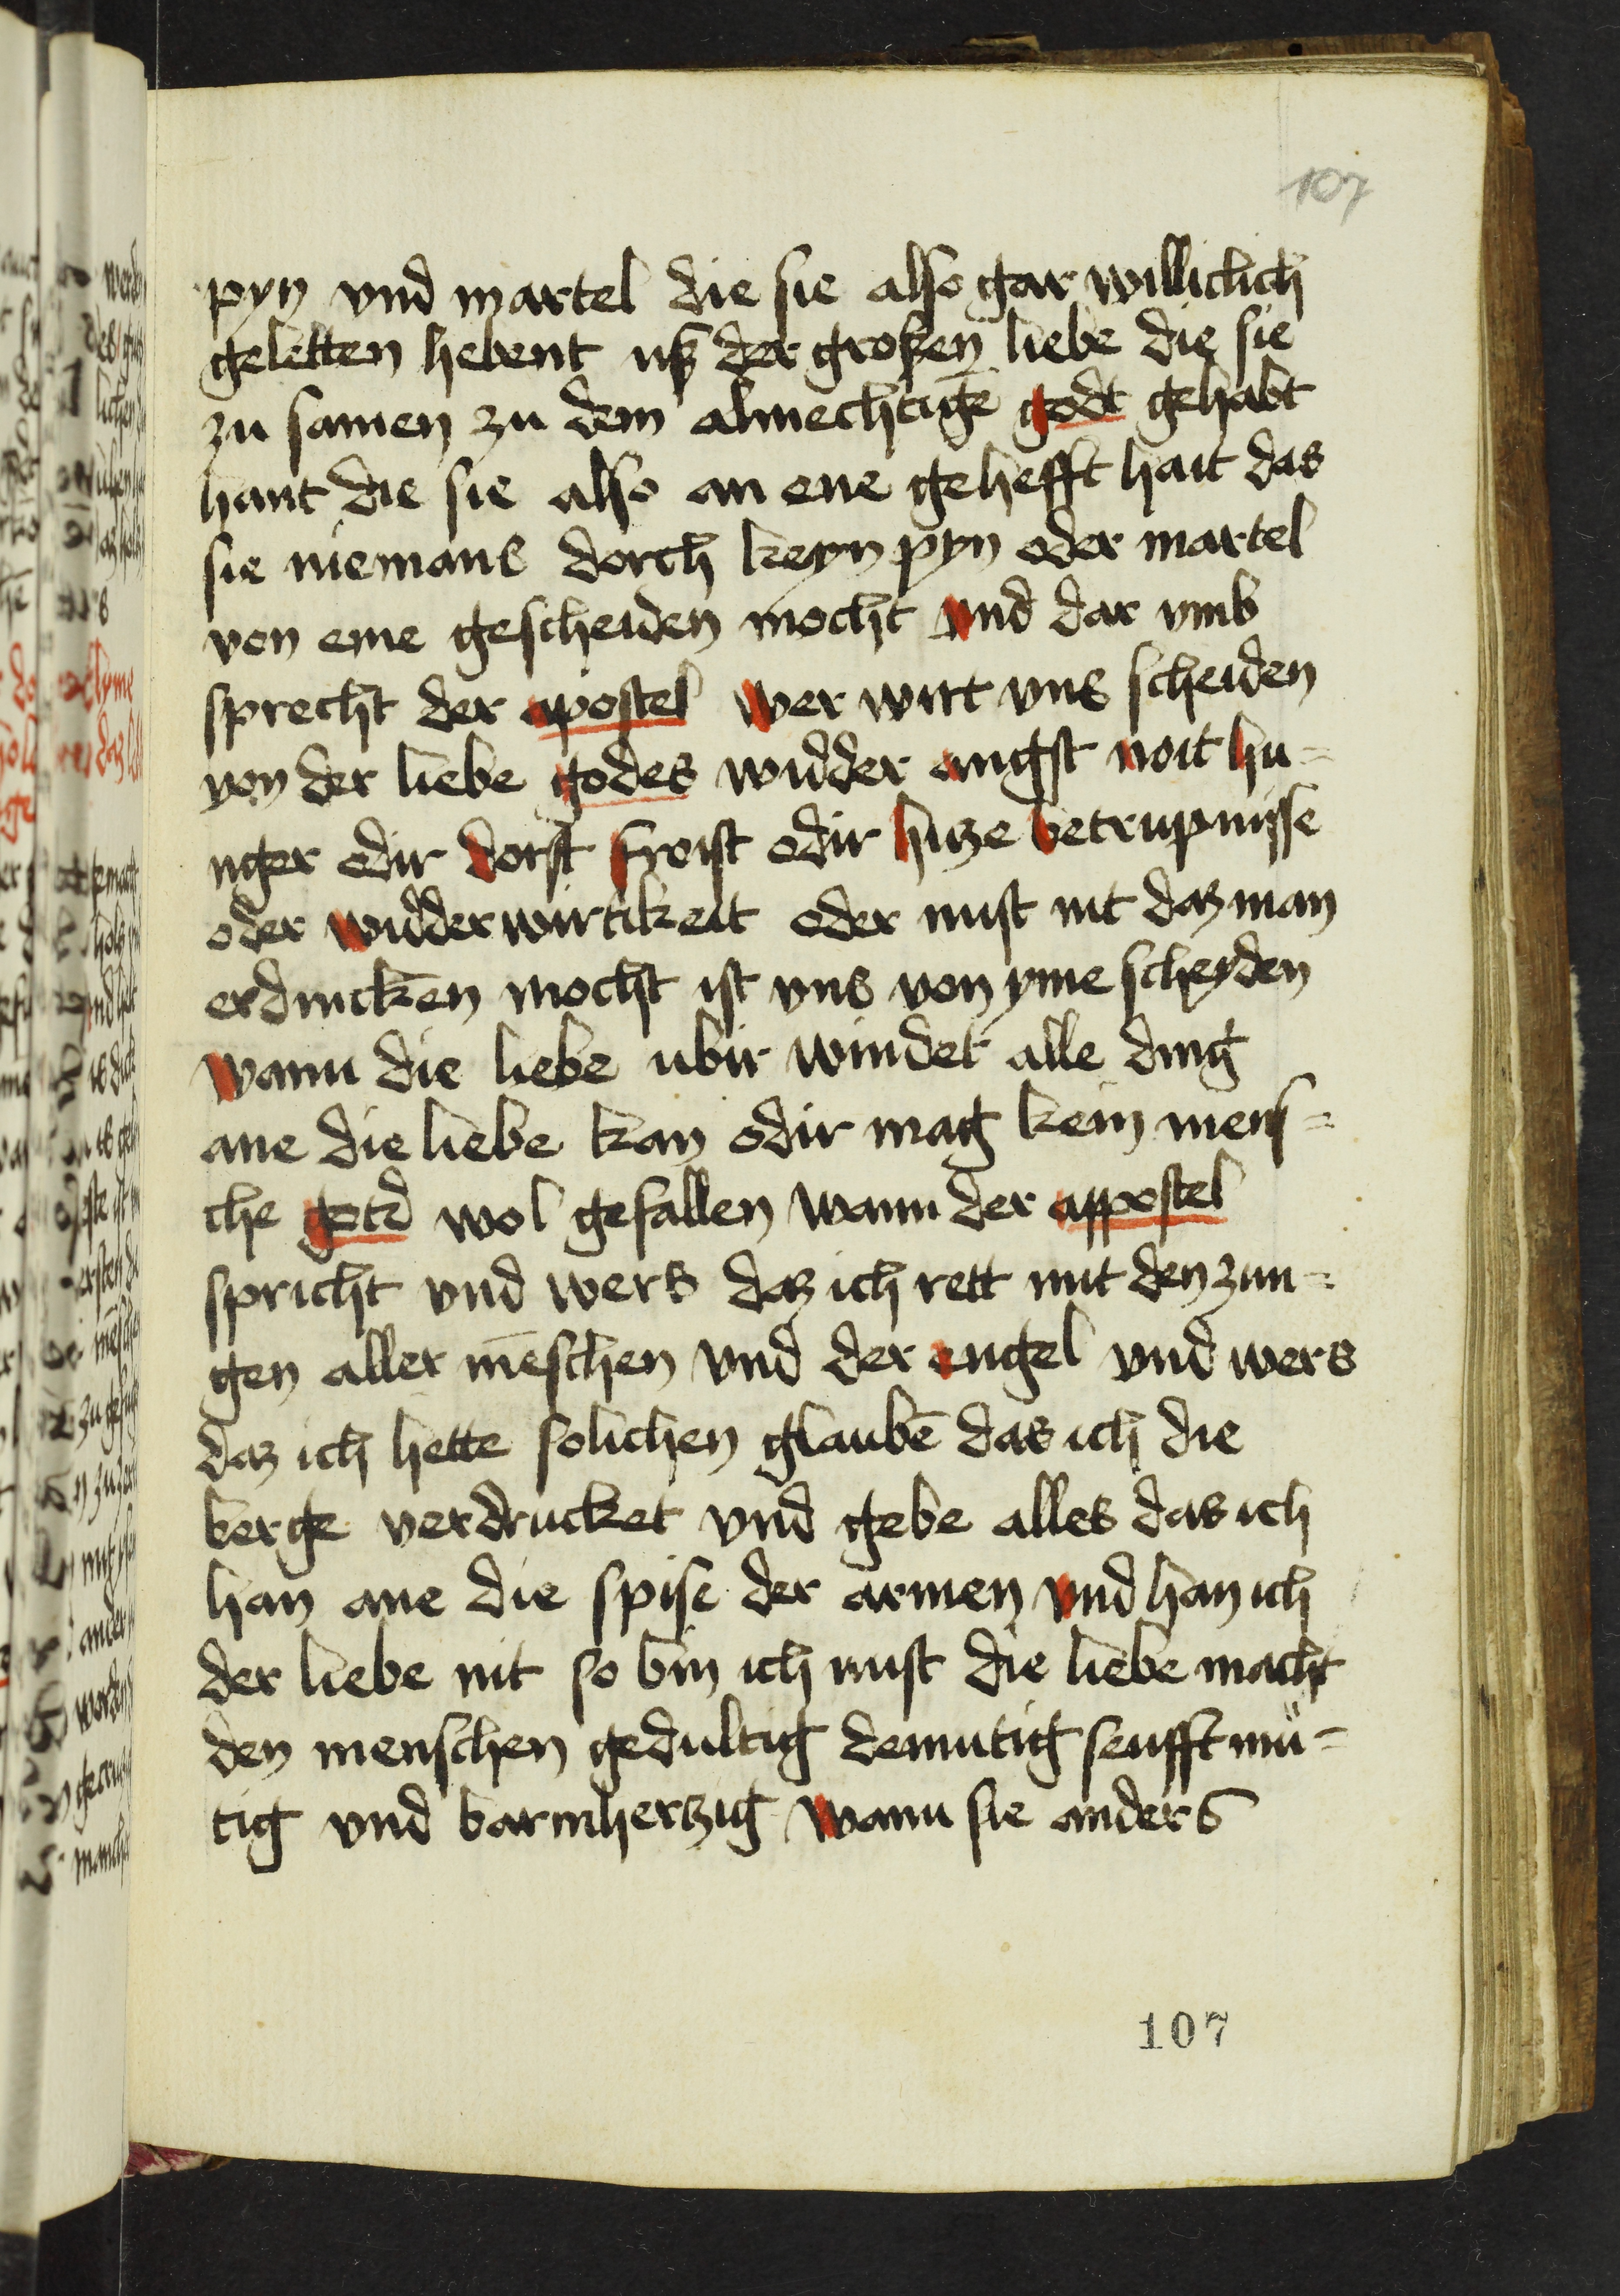 107
pyn vnd martel die sie also gar williclich
geletten hebent uß der großen liebe die sie
zu samen zu dem almechtigē godt gehabt
hant die sie also an ene gehefft hait das
sie niemans dorch keyn pyn oder martel
von eme gescheiden mocht vnd dar vmb
sprecht der apostel wer wirt vns scheiden
von der liebe godes widder angst noit hu=
nger odir dorst froist odir hitze betrupnisse
oder widderwirtikeit oder nust nit daz man
erdincken mocht ist vns von yme scheyden
wann die liebe ubir windet alle ding
ane die liebe kan odir mag kein mens=
che gotd wol gefallen wann der appostel
spricht vnd wers daz ich rett mit den zun=
gen aller mēschen vnd der engel vnd wers
daz ich hette solichen glaubē das ich die
berge verdrucket vnd gebe alles das ich
han ane die spise der armen vnd han ich
der liebe nit so bin ich nust die liebe macht
den menschen gedultig demutig senfftmü=
tig vnd barmhertzig wann sie anders
107